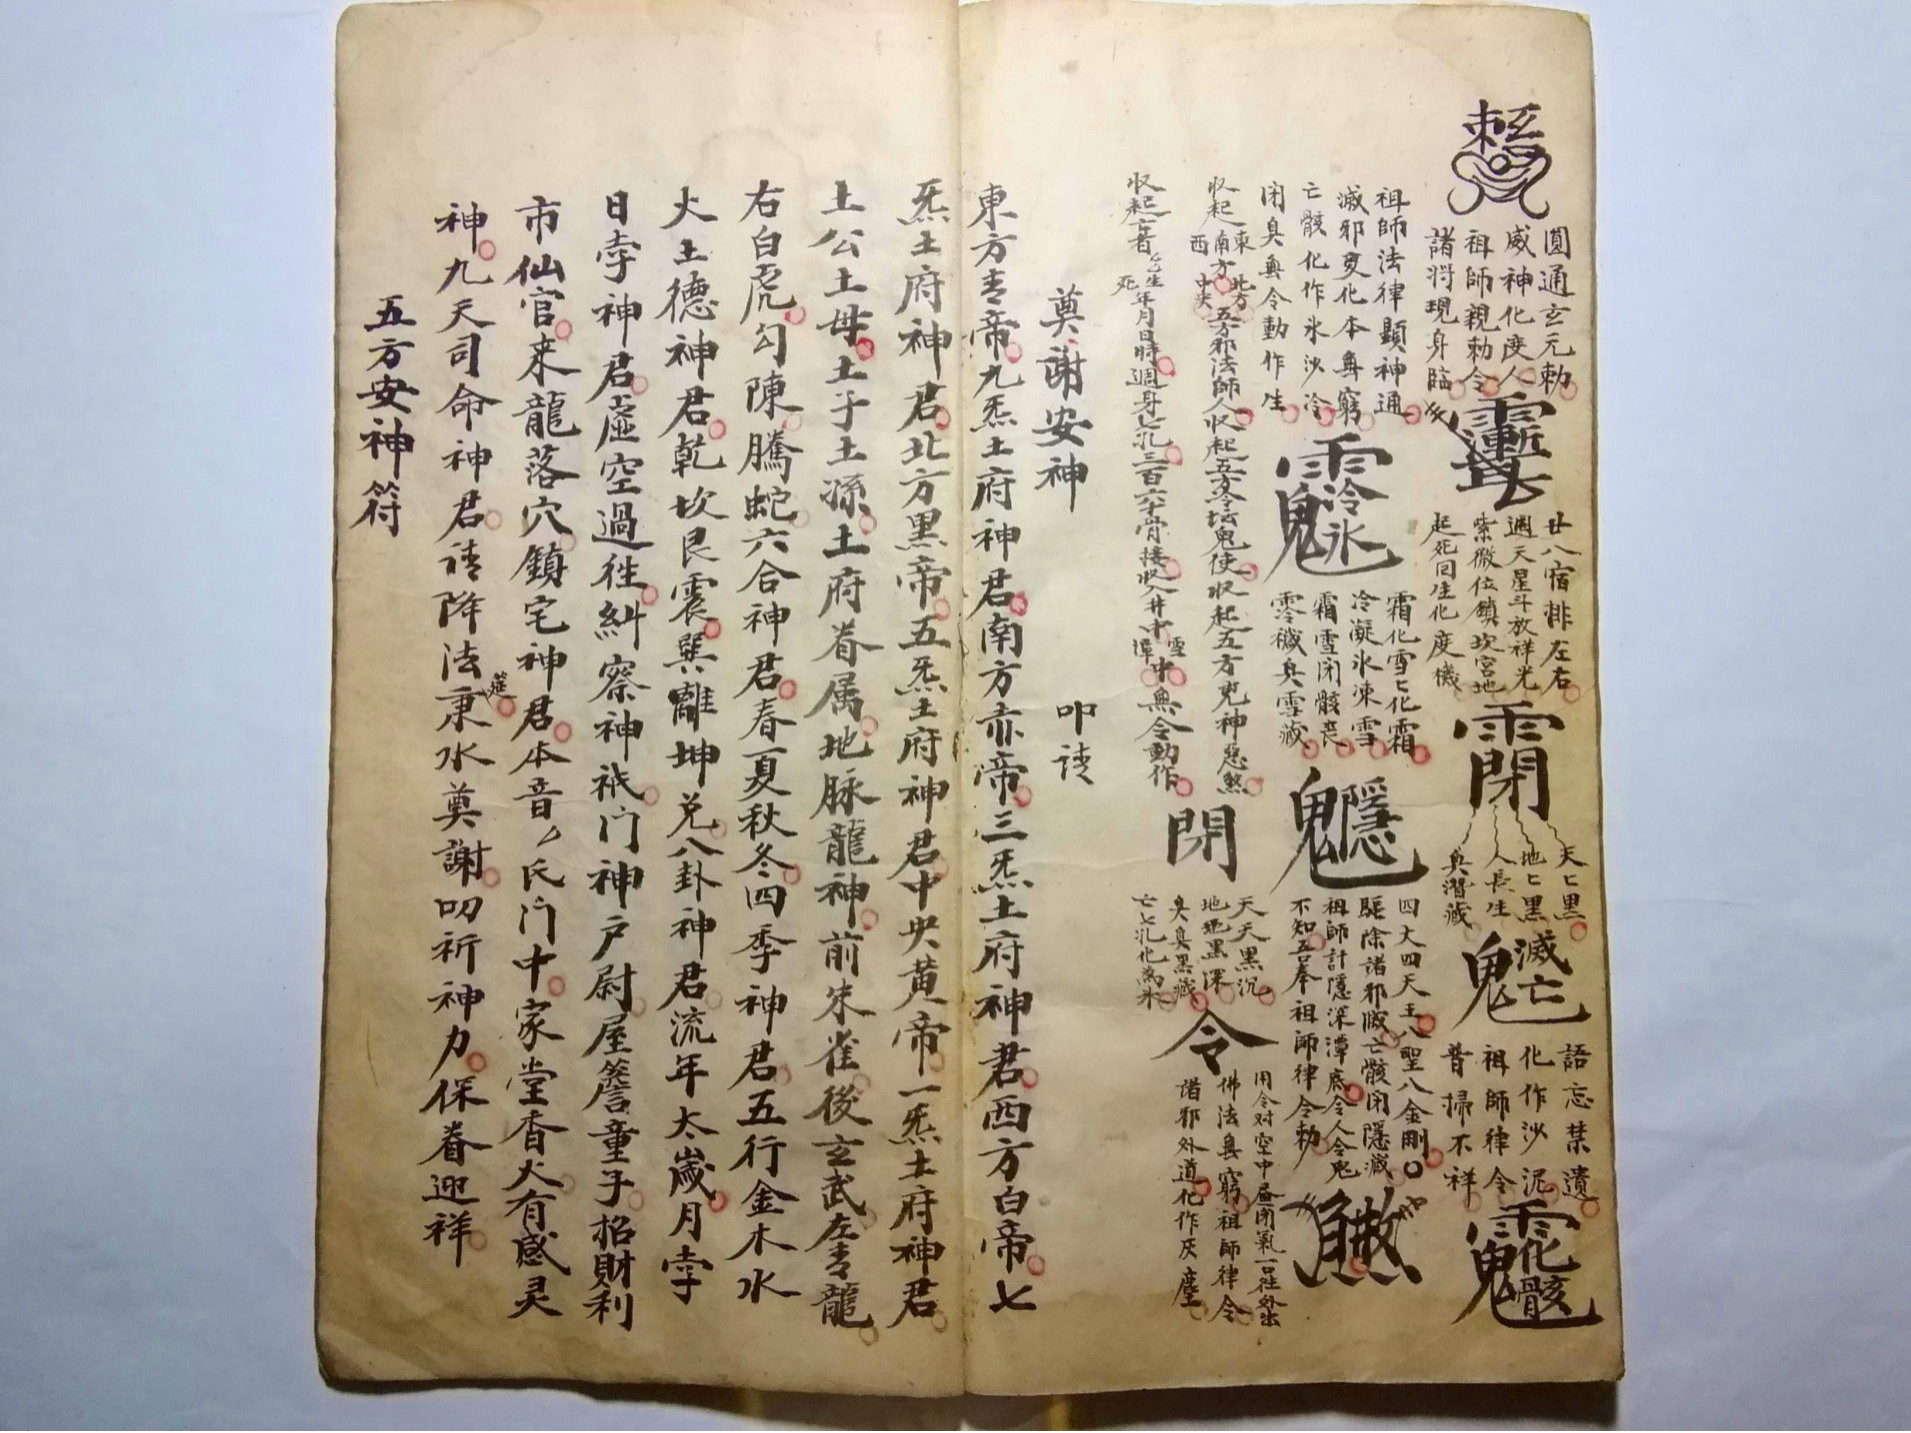 圓通玄元勅
威神化度人
祖師親勅令
諸将現身臨
廿八宿排左右
週天星斗放祥光
紫微位鎮坎宮地
起死回生化度機
閉
天七黒
地七黒
人長生
兵潛藏
滅亡鬼
語忘禁遺
化作沙泥
祖師律令
普掃不祥
祖師法律顯神通
滅邪变化本無窮
亡骸化作氷沙冷
閉臭無令動作生
霜化雪七化霜
冷凝氷凍雪
霜雪閉骸喪
零穢兵雪藏
四大四天王八聖八金剛
驅除諸邪滅亡骸閉隱滅
祖師計隱深潭底令人令鬼
不知吾奉祖師律令勅
收起東南西北方中央五方邪法師人收起五方令坛鬼使收起五方兇神惡煞
收起亡者生死年月日時週身七孔三百六十骨接收入井中雪潭中無令動作
閉
天天黒沉
地地黒深
臭臭黒藏
亡七孔化為氷
令
用令对空中晷閉氣一口往外出
佛法無窮祖師律令
諸邪外道化作灰塵
奠謝安神 叩請
東方青帝九炁土府神君南方赤帝三炁土府神君西方白帝七
炁土府神君北方黒帝五炁土府神君中央黄帝一炁土府神君
土公土母土子土孫土府眷属地脉龍神前朱雀後玄武左青龍
右白虎勾陳騰蛇六合神君春夏秋冬四季神君五行金木水
火土德神君乾坎艮震巽離坤兑八卦神君流年太歲月孛
日孛神君虛空過徃糾察神祇门神户尉屋簷童子招財利
市仙官来龍落穴鎮宅神君本音氏门中家堂香火有感灵
神九天司命神君請降法筵秉水奠謝叩祈神力保眷迎祥
五方安神符